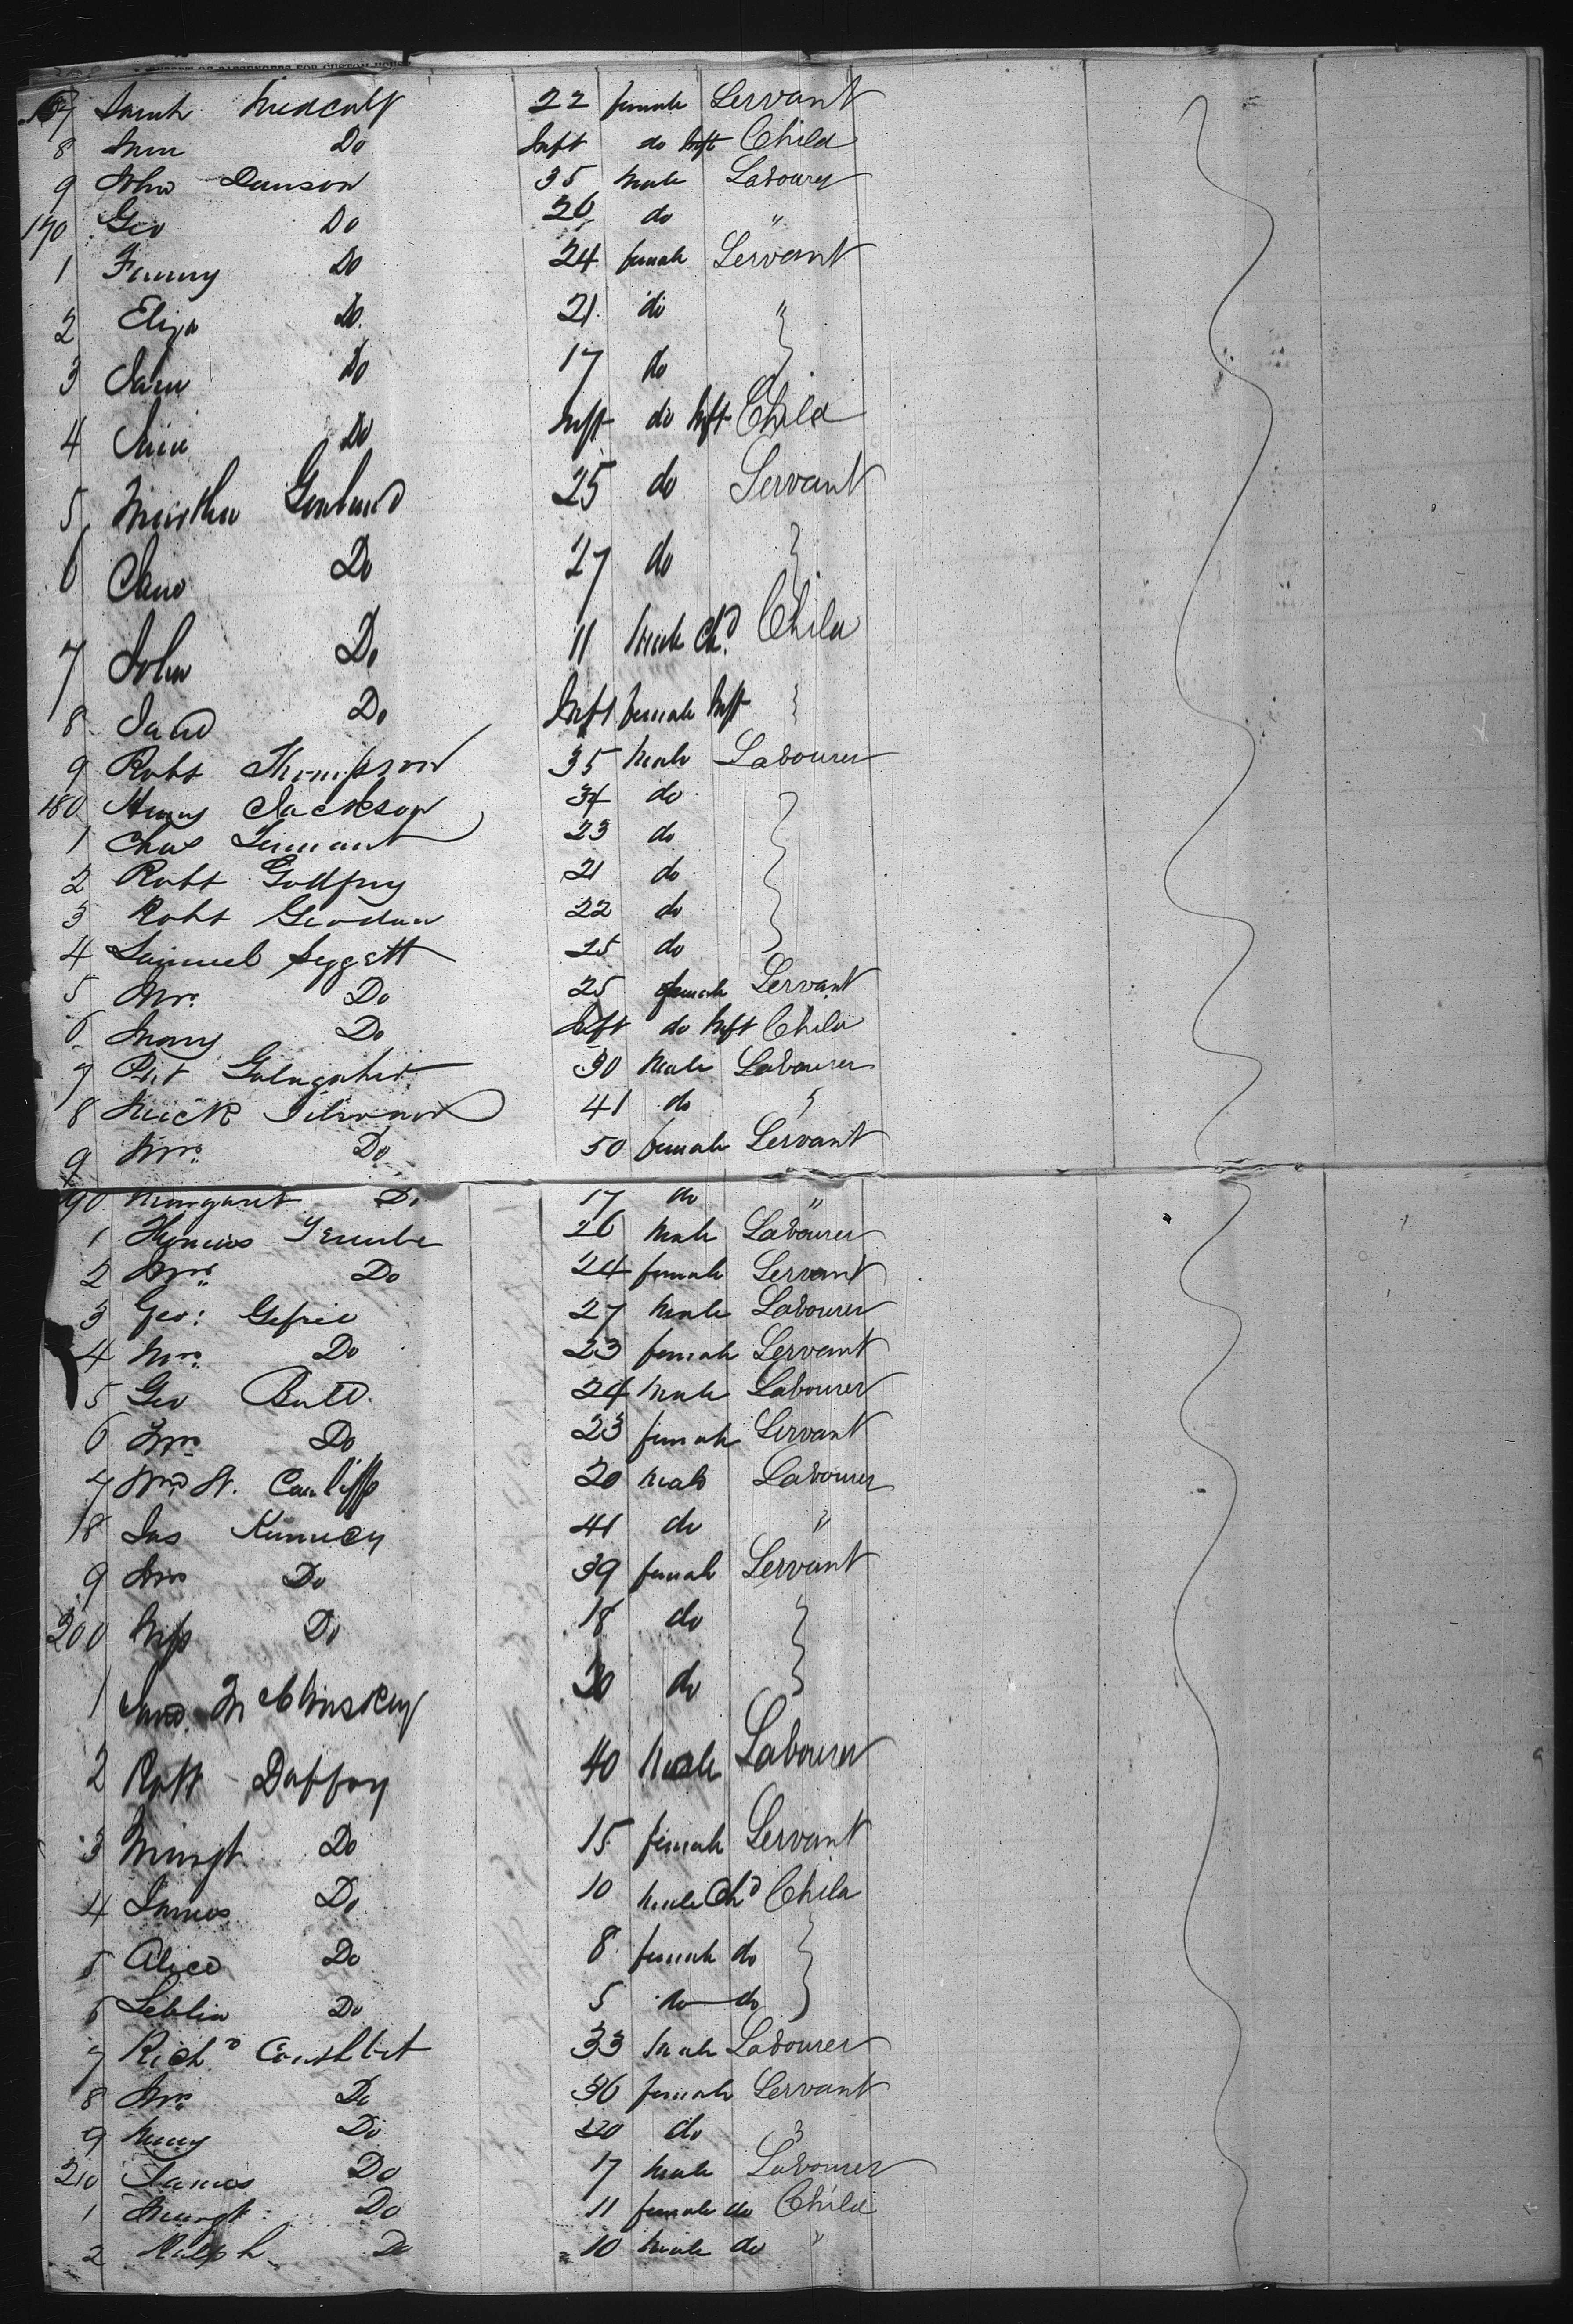 167 Sarah Medcalf 22 female Servant
8 Do Inft do Inft Child
9 John Dawson 35 Male Labourer
170 Geo Do 26 do "
1 Fanny Do 24 female Servant
2 Eliza Do 21 do "
3 Do 17 do
4 Do Inft do Inft Child
5 Martha 25 do Servant
6 Jane Do 27 do
7 John Do 11 Male Chd Child
8 Do Inft female Inft
9 Robt Thompson 35 Male Labourer
180 Henry Jackson 34 do
1 Chas Tennant 23 do
2 Robt Godfrey 21 do
3 Robt 22 do
4 Samuel 25 do
5 Mrs Do 25 female Servant
6 Mary Do Inft do Inft Child
7 Pat 30 Male Labourer
8 Mick 41 do "
9 Mrs Do 50 female Servant
190 Margaret Do 17 do "
1 Thomas 26 Male Labourer
2 Mrs Do 24 female Servant
3 Geo: 27 Male Labourer
4 Mrs Do 23 female Servant
5 Geo 24 Male Labourer
6 Mrs Do 23 female Servant
7 Wm H. Cunliffe 20 Male Labourer
8 Jas 41 do "
9 Mrs Do 39 female Servant
200 Miss Do 18 do
1 Jane McClinskey 30 do
2 Robt 40 Male Labourer
3 Margt Do 15 female Servant
4 James Do 10 Male Chd Child
5 Alice Do 8 female do
6 Do 5 do do
7 Richd 33 Male Labourer
8 Mrs Do 36 female Servant
9 Mary Do 20 do "
210 James Do 17 Male Labourer
1 Margt Do 11 female do Child
2 Ralph Do 10 Male do "